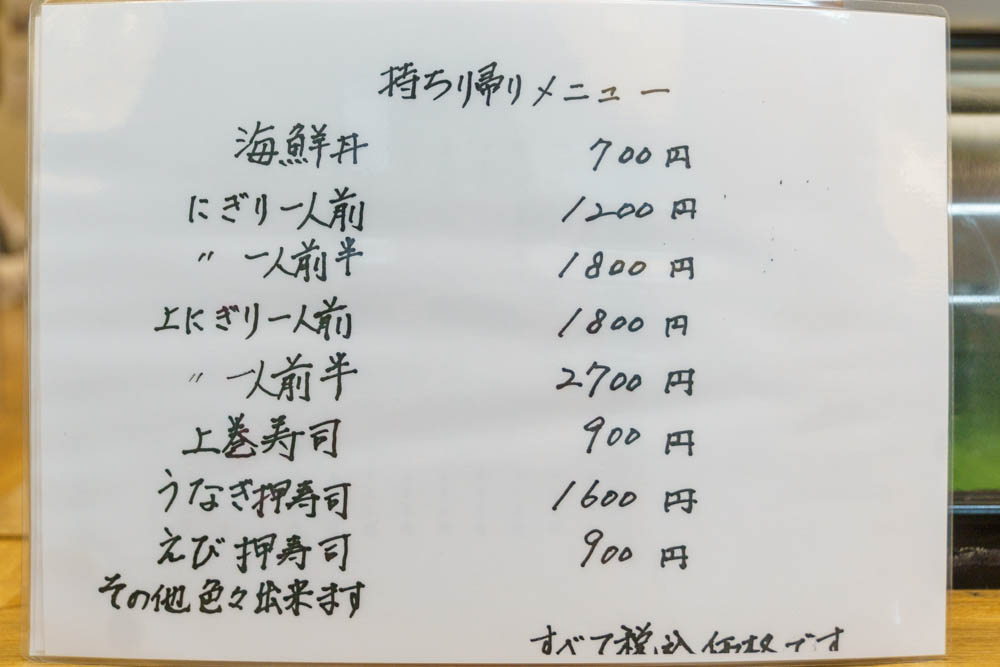 持ち帰りメニュー
海鮮丼 700円
にぎり一人前 1200円
〃 一人前半 1800円
上にぎり一人前 1800円
〃 一人前半 2700円
上巻寿司 900円
うなぎ押寿司 1600円
えび押寿司 900円
その他色々出来ます
すべて税込価格です